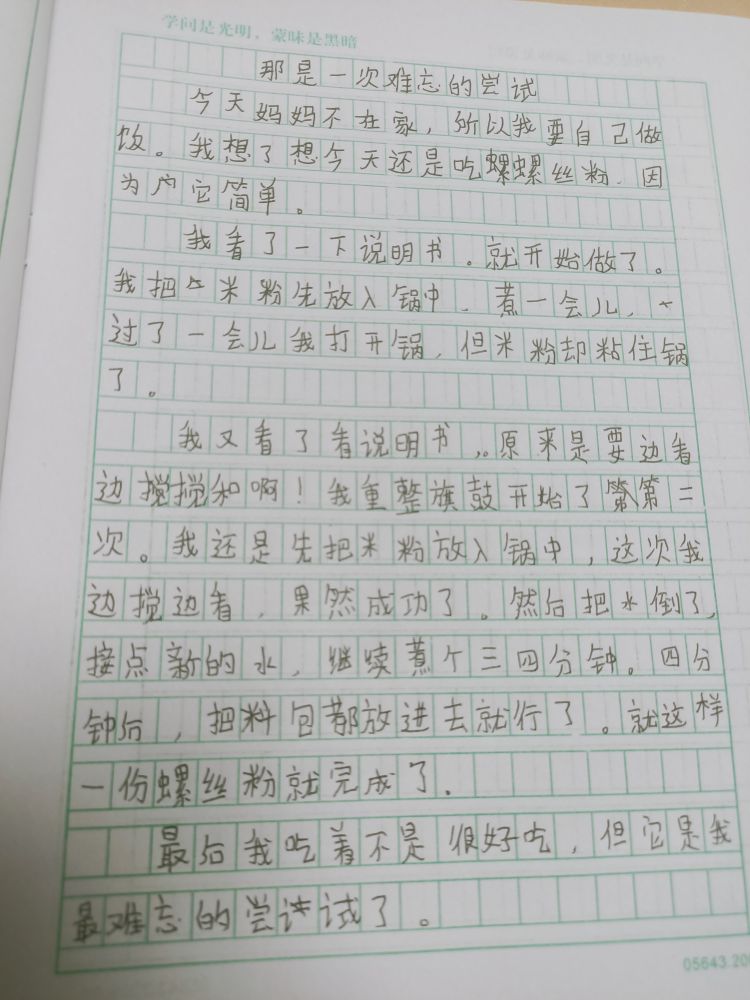 学问是光明，蒙昧是黑暗
那是一次难忘的尝试
今天妈妈不在家，所以我要自己做
饭。我想了想今天还是吃螺螺丝粉，因
为它简单。
我看了一下说明书。就开始做了。
我把米粉先放入锅中，煮一会儿，
过了一会儿我打开锅，但米粉却粘住锅
了。
我又看了看说明书，原来是要边看
边搅搅和啊！我重整旗鼓开始了第二
次。我还是先把米粉放入锅中，这次我
边搅边看，果然成功了。然后把水倒了，
接点新的水，继续煮个三四分钟。四分
钟后，把料包都放进去就行了。就这样
一份螺丝粉就完成了.
最后我吃着不是很好吃，但它是我
最难忘的尝试了。
05643.200